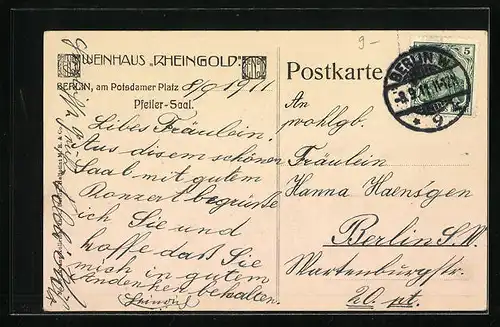 WEINHAUS „RHEINGOLD“
BERLIN, am Potsdamer Platz 8/9 1911
Pfeiler-Saal.
Libes Fräulein.
Aus disem schönen
Saal mit gutem
Konzert begrüße
ich Sie und
hoffe daß Sie
mich in gutem
Andenken behalten.
9-
Postkarte
5
BERLIN W.
8.9.11. 11-12V.
* 9
An
wohlgb.
Fräulein
Hanna Haensgen
Berlin S.W.
Wartenburgstr.
20. pt.